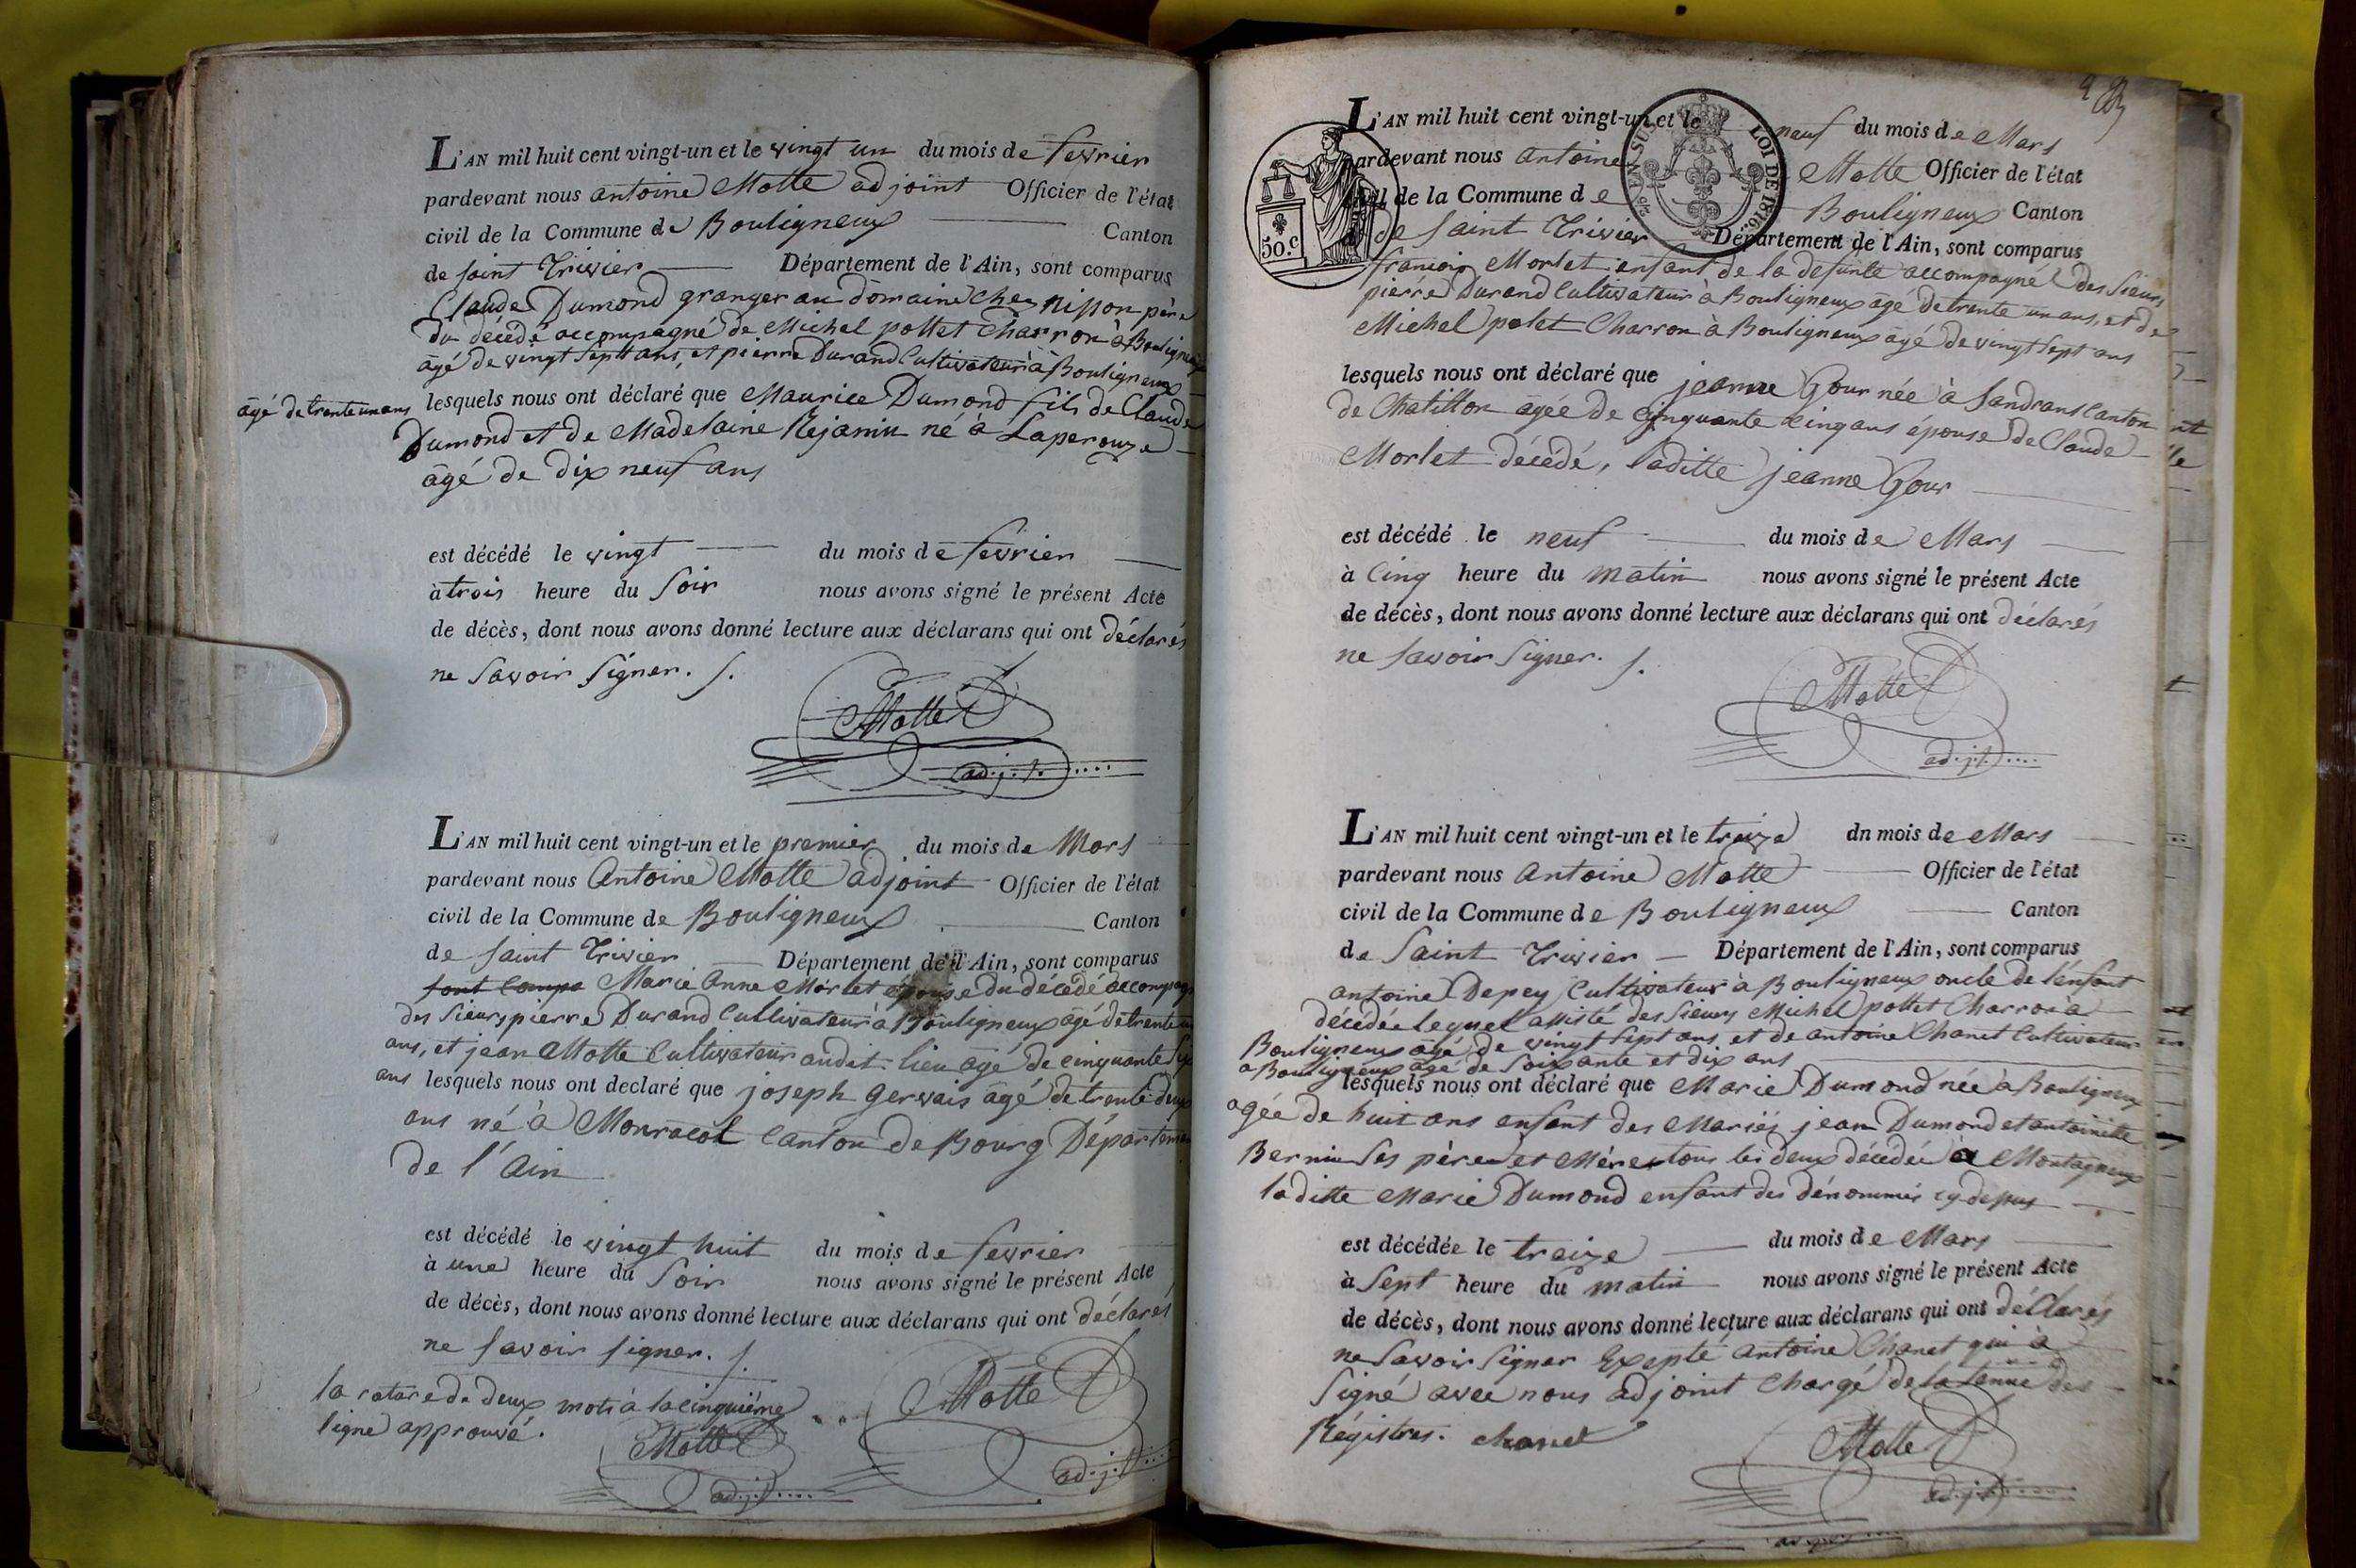 L'AN mil huit cent vingt-un et le vingt un du mois de fevrier
pardevant nous antoine Motte adjoint Officier de l'état
civil de la Commune de Bouligneux Canton
de saint Trivier Département de l'Ain, sont comparus
Claude Dumond granger au domaine Chez Nisson père
du décédé accompagné de Michel pottet Charron à Bouligneux
âgé de vingt sept ans, et pierre Durand Cultivateur à Bouligneux
âgé de trente un ans lesquels nous ont déclaré que Maurice Dumond fils de Claude
Dumond et de Madelaine Rejanin né a Laperouze
âgé de dix neuf ans
est décédé le vingt du mois de fevrier
à trois heure du soir nous avons signé le présent Acte
de décès, dont nous avons donné lecture aux déclarans qui ont déclarés
ne savoir signer. /.
Motte
adj.t
L'AN mil huit cent vingt-un et le premier du mois de Mars
pardevant nous Antoine Motte adjoint Officier de l'état
civil de la Commune de Bouligneux Canton
de saint Trivier Département de l'Ain, sont comparus
sont Compa Marie Anne Morlet épouse du décédé accompagné
des sieurs pierre Durand Cultivateur à Bouligneux âgé de trente un
ans, et jean Motte Cultivateur audit lieu âgé de cinquante six
ans lesquels nous ont declaré que joseph gervais âgé de trente deux
ans né à Monracol Canton de Bourg Département
de l'Ain
est décédé le vingt huit du mois de fevrier
à une heure du soir nous avons signé le présent Acte
de décès, dont nous avons donné lecture aux déclarans qui ont déclarés
ne savoir signer. /.
la rature de deux mots à la cinquième
ligne approuvé.
Motte
adj.t
Motte
adj.t
L'AN mil huit cent vingt-un et le neuf du mois de Mars
pardevant nous antoine Motte Officier de l'état
civil de la Commune de Bouligneux Canton
de saint Trivier Département de l'Ain, sont comparus
EN SUS LOI DE 1816.
50.c
francois Morlet enfant de la défunte accompagné des sieurs
pierre Durand Cultivateur à Bouligneux âgé de trente un ans, et de
Michel polet Charron à Bouligneux âgé de vingt sept ans
lesquels nous ont déclaré que jeanne Gour née à Sandrans Canton
de Chatillon âgée de cinquante cinq ans épouse de Claude
Morlet décédé, laditte jeanne Gour
est décédé le neuf du mois de Mars
à cinq heure du matin nous avons signé le présent Acte
de décès, dont nous avons donné lecture aux déclarans qui ont déclarés
ne savoir signer. /.
Motte
adj.t
L'AN mil huit cent vingt-un et le treize dn mois de Mars
pardevant nous antoine Motte Officier de l'état
civil de la Commune de Bouligneux Canton
de Saint Trivier Département de l'Ain, sont comparus
antoine Depey Cultivateur à Bouligneux oncle de l'enfant
décédée lequel assisté des sieurs Michel pottet Charron à
Bouligneux âgé de vingt sept ans, et de antoine Chanet Cultivateur
a Bouligneux âgé de soixante et dix ans
lesquels nous ont déclaré que Marie Dumond née à Bouligneux
agée de huit ans enfant des Mariés jean Dumond et antoinette
Bernin ses père et Mère tous les deux décédés à Montagneux
laditte Marie Dumond enfant des dénommés cy depus
est décédée le treize du mois de Mars
à sept heure du matin nous avons signé le présent Acte
de décès, dont nous avons donné lecture aux déclarans qui ont déClarés
ne Savoir Signer Exepté antoine Chanet qui à
signé avec nous adjoint Chargé de la tenue des
Régistres. chanet
Motte
adj.t